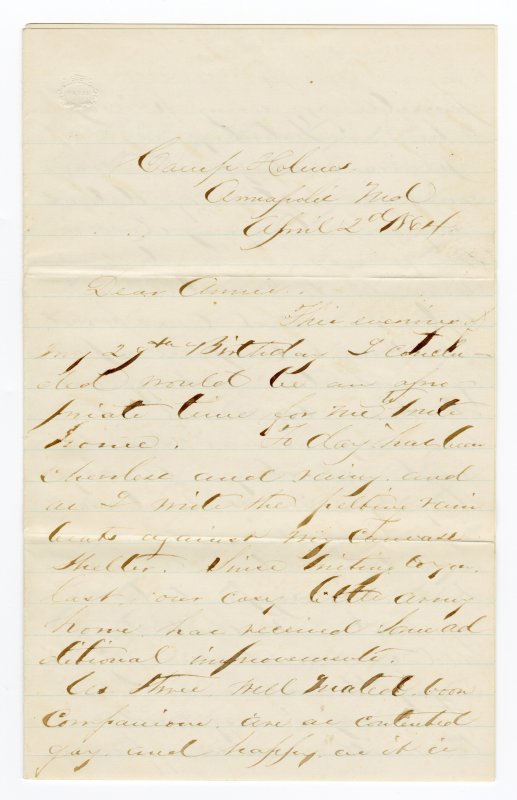 Camp Holmes
Annapolis Md
April 2nd 1864.
Dear Annie.
This evening of
my 29th Birthday I conclu-
ded would be an apro
priate time for me to write
home. To day has been
cheerless and rainy and
as I write the pelting rain
beats against my canvass
shelter. Since writing to you
last, our cosy little army
home has received some ad
ditional improvements.
We three, well mated boon
companions are as contented
gay and happy as it is